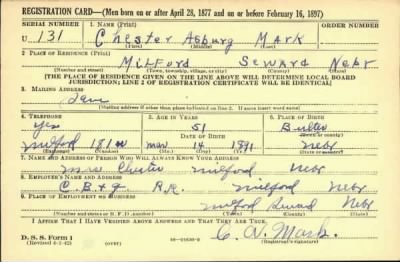 REGISTRATION CARD—(Men born on or after April 28, 1877 and on or before February 16, 1897)
SERIAL NUMBER 1. NAME (Print)
U 131 Chester Asbury Mark
(First) (Middle) (Last)
2. PLACE OF RESIDENCE (Print)
Milford Seward Nebr
(Number and street) (Town, township, village, or city) (County) (State)
[THE PLACE OF RESIDENCE GIVEN ON THE LINE ABOVE WILL DETERMINE LOCAL BOARD
JURISDICTION; LINE 2 OF REGISTRATION CERTIFICATE WILL BE IDENTICAL]
3. MAILING ADDRESS
Same
[Mailing address if other than place indicated on line 2. If same insert word same]
4. TELEPHONE 5. AGE IN YEARS 6. PLACE OF BIRTH
yes 51 Butler
DATE OF BIRTH
Milford 181 Mar 14 1891 Nebr
7. NAME AND ADDRESS OF PERSON WHO WILL ALWAYS KNOW YOUR ADDRESS
Mrs Chester Milford Nebr
8. EMPLOYER'S NAME AND ADDRESS
C.B.& Q. R.R. Milford Nebr
9. PLACE OF EMPLOYMENT OR BUSINESS
Milford Seward Nebr
(Number and street or R. F. D. number) (Town) (County) (State)
I AFFIRM THAT I HAVE VERIFIED ABOVE ANSWERS AND THAT THEY ARE TRUE.
D. S. S. Form 1
(Revised 4-1-42) (over) C. A. Mark
(Registrant's signature)